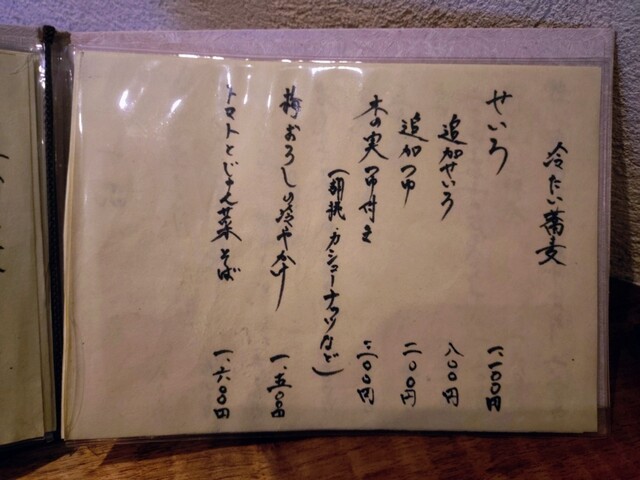 冷たい蕎麦
せいろ 一、一〇〇円
追加せいろ 八〇〇円
追加つゆ 二〇〇円
木の実つゆ付き 三〇〇円
(胡桃・カシューナッツなど)
梅おろしの冷やかけ 一、五〇〇円
トマトとじゅん菜そば 一、六〇〇円